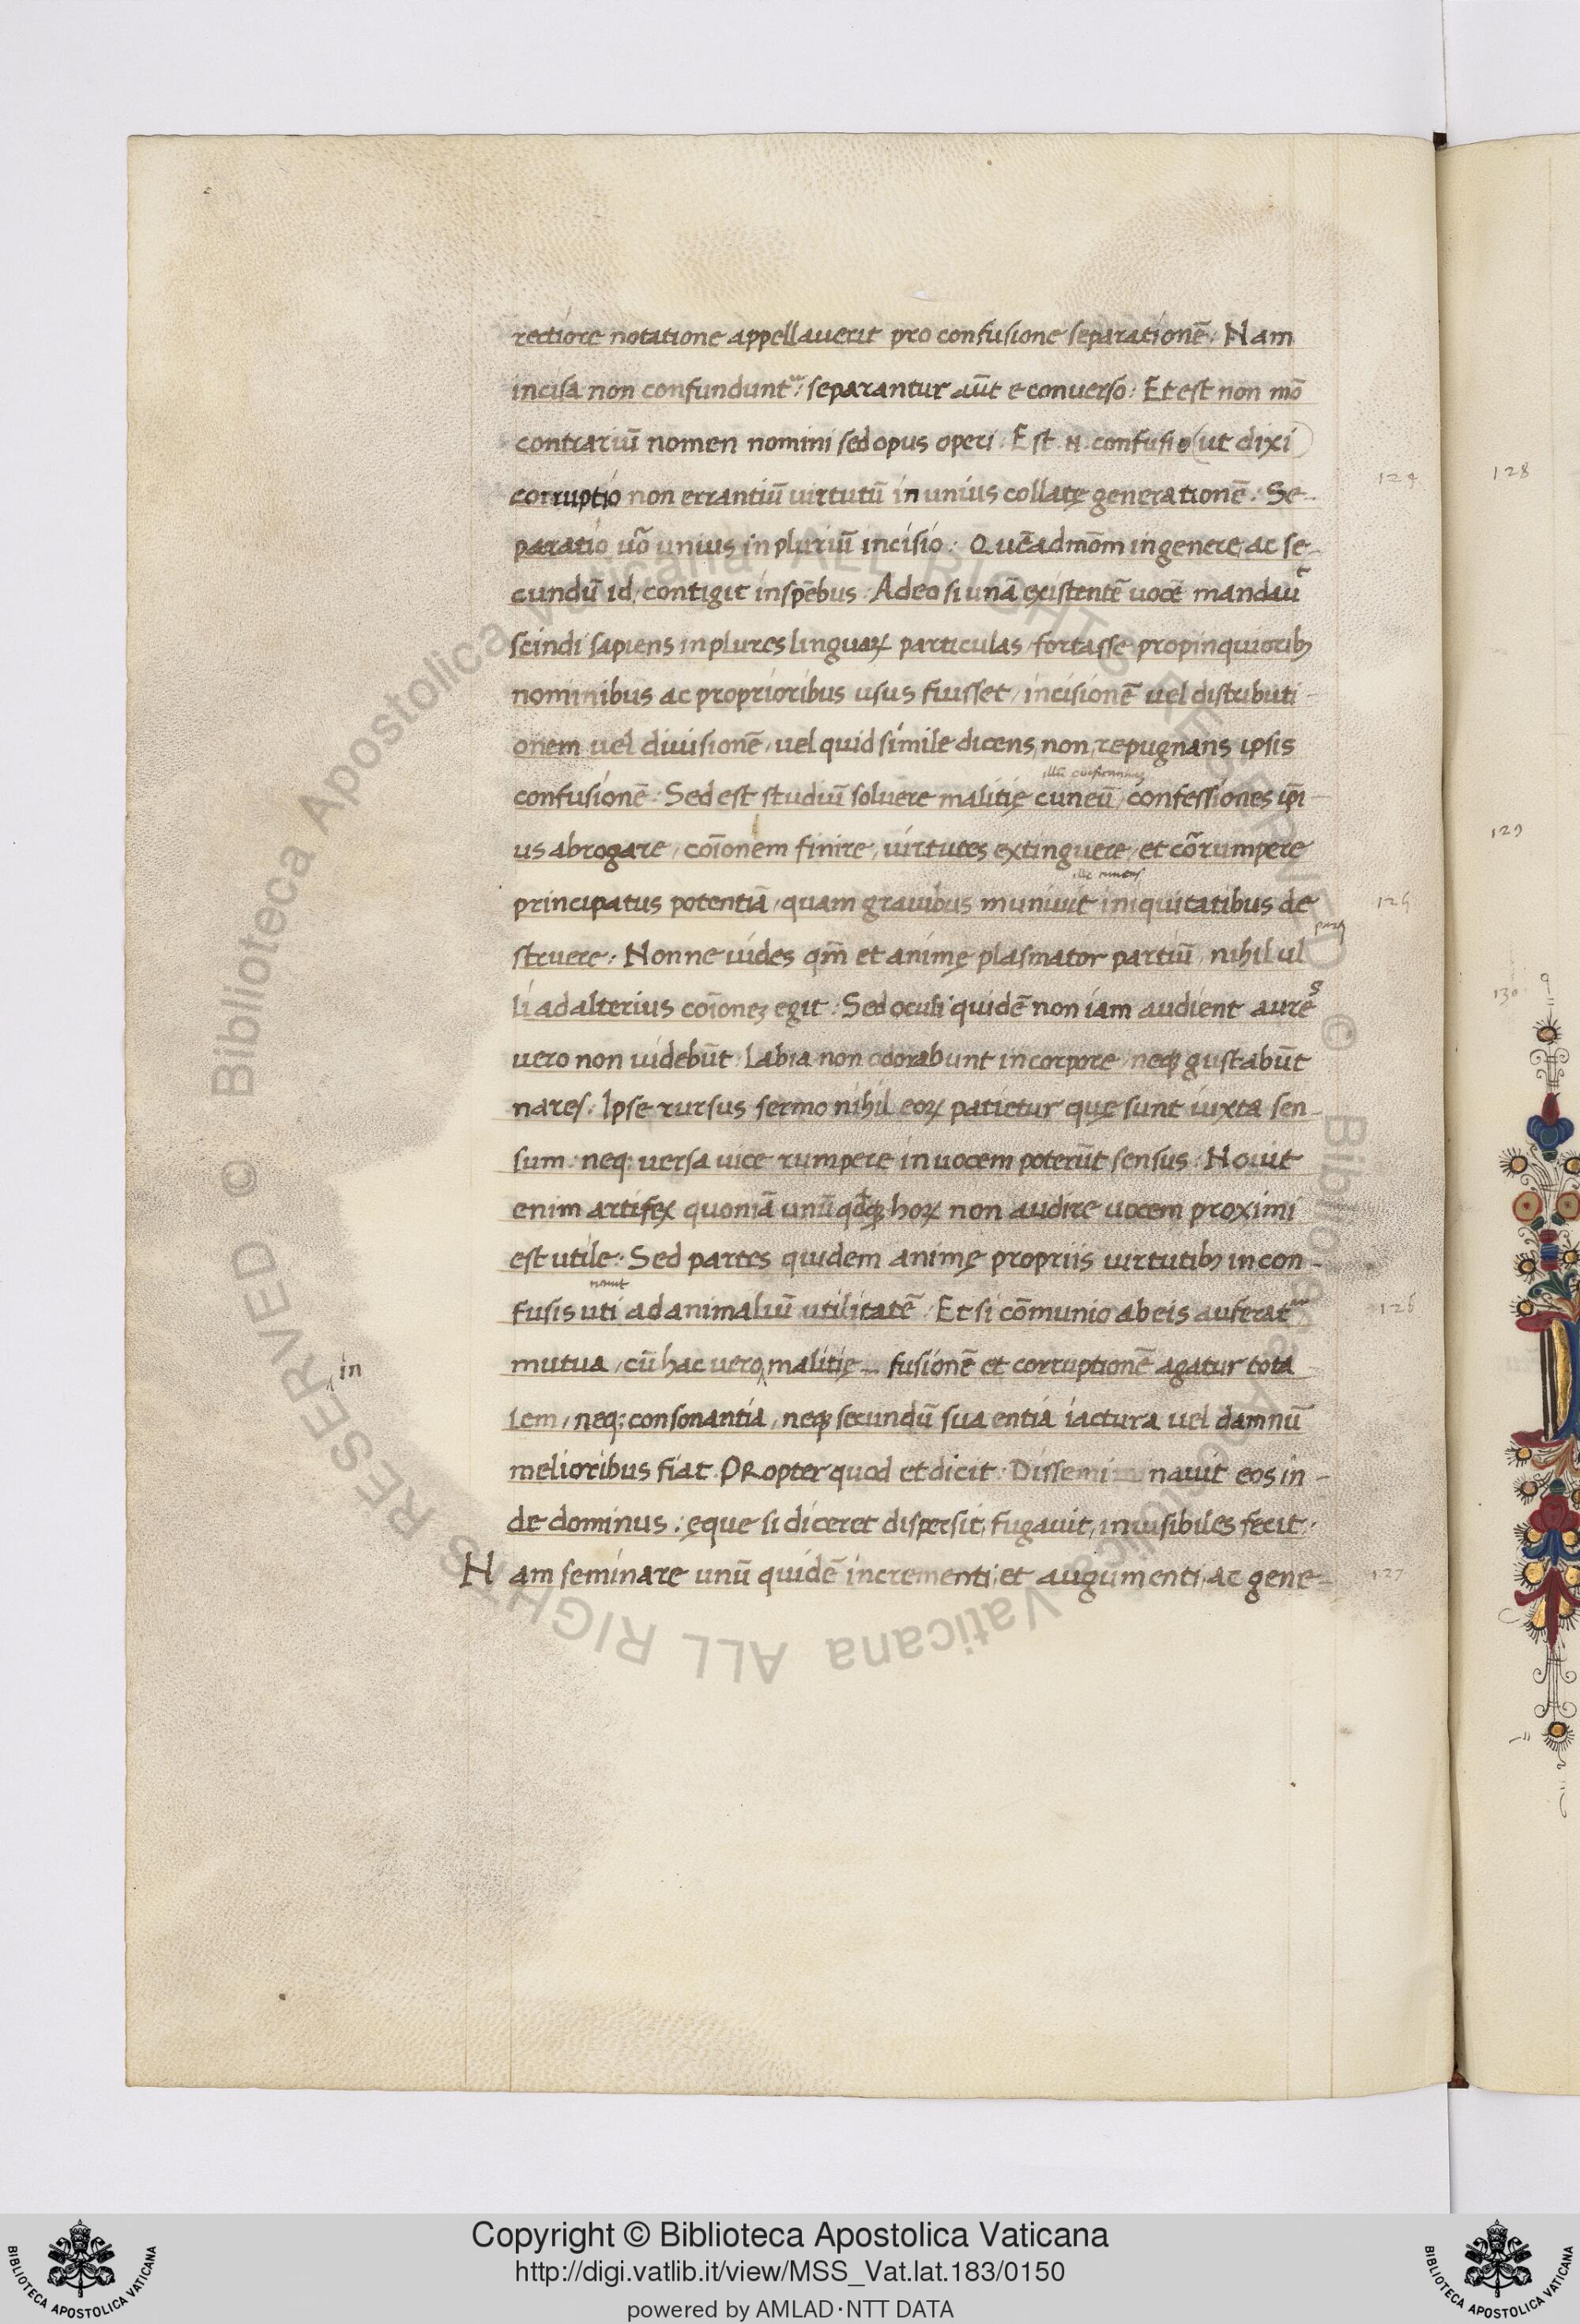 rectiore notatione appellauerit pro confusione separationē: Nam
incisa non confundunt᷑: separantur aūt e conuerso: Et est non mō
contrariū nomen nomini sed opus operi: Est .n. confusio (ut dixi)
124
128
corruptio non errantiū uirtutū in unius collatę generationē: Se-
paratio uō unius in pluriū incisio: Quēadmōm in genere, ac se-
cundū id, contigit in spēbus: Adeo si unā existentē uocē mandauͭ
scindi sapiens in plures linguaꝝ particulas, fortasse propinquiorib;
nominibus ac proprioribus usus fuisset, incisionē uel distributi-
onem uel diuisionē, uel quid simile dicens, non, repugnans ipsis
confusionē: Sed est studiū soluere malitię cuneū, confessiones ip̄i-
129
us abrogare, coīonem finire, uirtutes extinguere, et cōrumpere
ille cuneus
principatus potentiā, quam grauibus muniuit iniquitatibus de
125
struere: Nonne uides qm̄ et animę plasmator partiū, nihil ul
li ad alterius coīoneʒ egit: Sed oculi quidē non iam audient aures
130
uero non uidebūt: Labia non odorabunt in corpore, neqꝫ gustabūt
nares: Ipse rursus sermo nihil eoꝝ patietur quę sunt iuxta sen-
sum: neq; uersa uice rumpere in uocem poterūt sensus: Nouit
enim artifex quoniā unūqđqꝫ hoꝝ non audire uocem proximi
est utile: Sed partes quidem animę propriis uirtutibꝫ incon-
nouit
fusis uti ad animaliū utilitatē: Et si cōmunio ab eis auferat᷑
126
mutua, cū hac uero malitię - fusionē et corruptionē agatur tota
in
lem, neq; consonantia, neqꝫ secundū sua entia iactura uel damnū
melioribus fiat: PRopter quod et dicit: Dissemi nauit eos in-
de dominus: eque si diceret dispersit, fugauit, inuisibiles fecit:
Nam seminare unū quidē incrementi, et augumenti, ac gene-
127
Copyright © Biblioteca Apostolica Vaticana
http://digi.vatlib.it/view/MSS_Vat.lat.183/0150
powered by AMLAD·NTT DATA
BIBLIOTECA APOSTOLICA VATICANA
BIBLIOTECA APOSTOLICA VATICANA
© Biblioteca Apostolica Vaticana ALL RIGHTS RESERVED © Biblioteca Apostolica Vaticana ALL RIGHTS RESERVED